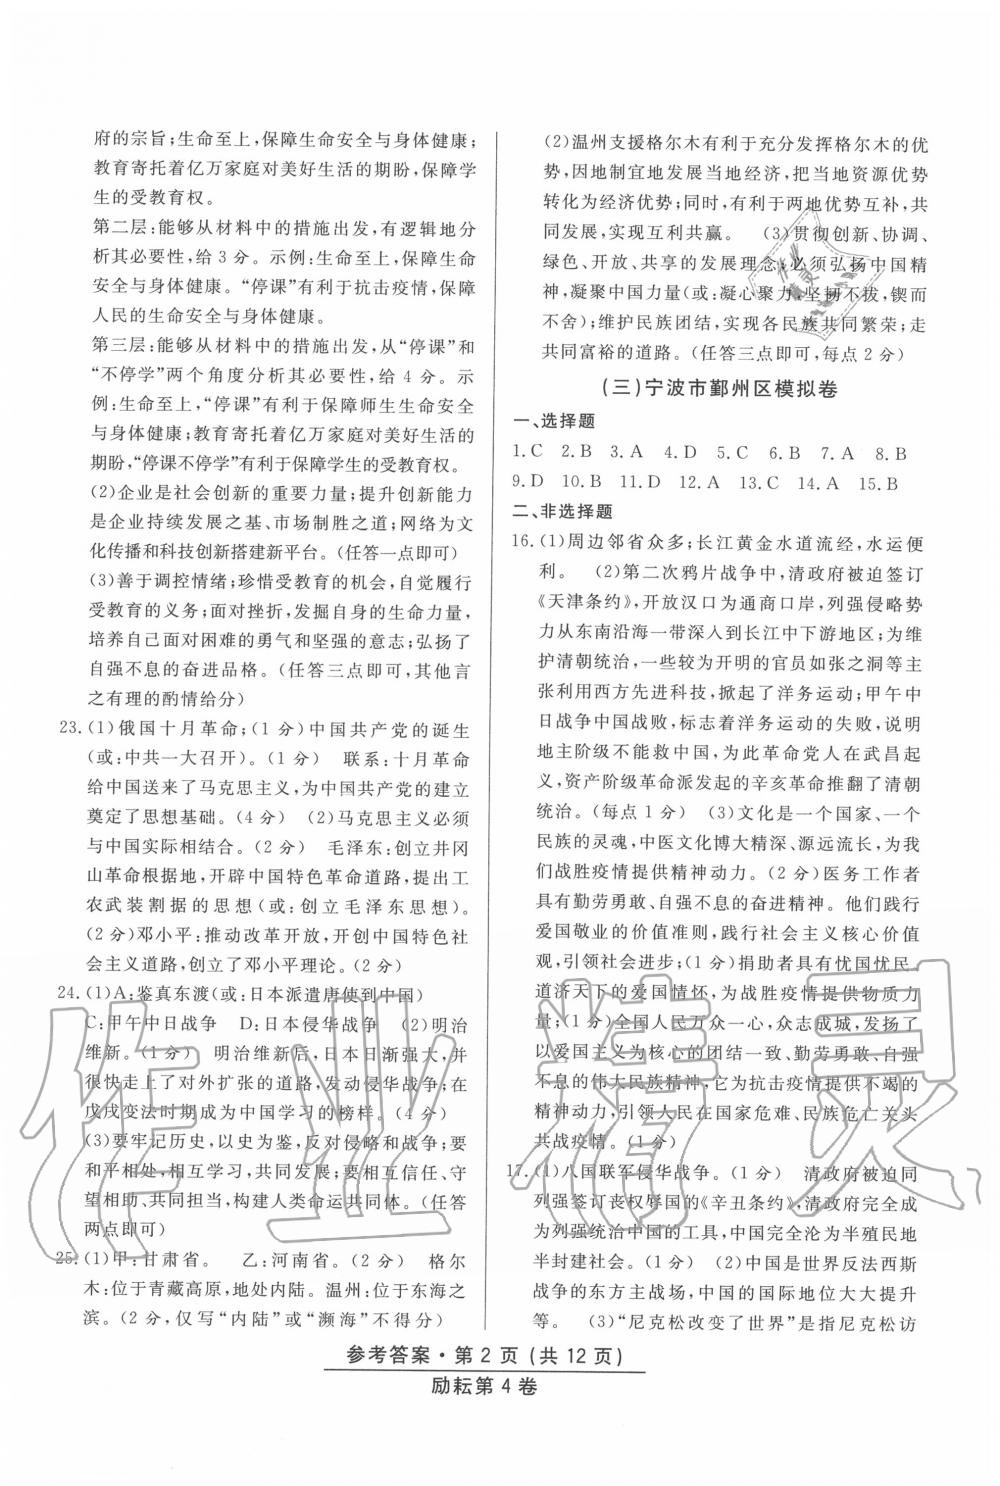 府的宗旨;生命至上,保障生命安全与身体健康;
教育寄托着亿万家庭对美好生活的期盼,保障学
生的受教育权。
第二层:能够从材料中的措施出发,有逻辑地分
析其必要性,给 3 分。示例:生命至上,保障生命
安全与身体健康。“停课”有利于抗击疫情,保障
人民的生命安全与身体健康。
第三层:能够从材料中的措施出发,从“停课”和
“不停学”两个角度分析其必要性,给 4 分。示
例:生命至上,“停课”有利于保障师生生命安全
与身体健康;教育寄托着亿万家庭对美好生活的
期盼,“停课不停学”有利于保障学生的受教育权。
(2)企业是社会创新的重要力量;提升创新能力
是企业持续发展之基、市场制胜之道;网络为文
化传播和科技创新搭建新平台。(任答一点即可)
(3)善于调控情绪;珍惜受教育的机会,自觉履行
受教育的义务;面对挫折,发掘自身的生命力量,
培养自己面对困难的勇气和坚强的意志;弘扬了
自强不息的奋进品格。(任答三点即可,其他言
之有理的酌情给分)
23.(1)俄国十月革命;(1 分)中国共产党的诞生
(或:中共一大召开)。(1 分) 联系:十月革命
给中国送来了马克思主义,为中国共产党的建立
奠定了思想基础。(4 分) (2)马克思主义必须
与中国实际相结合。(2 分) 毛泽东:创立井冈
山革命根据地,开辟中国特色革命道路,提出工
农武装割据的思想(或:创立毛泽东思想)。
(2 分)邓小平:推动改革开放,开创中国特色社
会主义道路,创立了邓小平理论。(2 分)
24.(1)A:鉴真东渡(或:日本派遣唐使到中国)
C:甲午中日战争 D:日本侵华战争 (2)明治
维新。(1 分) 明治维新后,日本日渐强大,并
很快走上了对外扩张的道路,发动侵华战争;在
戊戌变法时期成为中国学习的榜样。(4 分)
(3)要牢记历史,以史为鉴,反对侵略和战争;要
和平相处,相互学习,共同发展;要相互信任、守
望相助、共同担当,构建人类命运共同体。(任答
两点即可)
25.(1)甲:甘肃省。 乙:河南省。(2 分) 格尔
木:位于青藏高原,地处内陆。温州:位于东海之
滨。(2 分,仅写“内陆”或“濒海”不得分)
(2)温州支援格尔木有利于充分发挥格尔木的优
势,因地制宜地发展当地经济,把当地资源优势
转化为经济优势;同时,有利于两地优势互补,共
同发展,实现互利共赢。 (3)贯彻创新、协调、
绿色、开放、共享的发展理念;必须弘扬中国精
神,凝聚中国力量(或:凝心聚力,坚韧不拔,锲而
不舍);维护民族团结,实现各民族共同繁荣;走
共同富裕的道路。(任答三点即可,每点 2 分)
(三)宁波市鄞州区模拟卷
一、选择题
1.C 2.B 3.A 4.D 5.C 6.B 7.A 8.B
9.D 10.B 11.D 12.A 13.C 14.A 15.B
二、非选择题
16.(1)周边邻省众多;长江黄金水道流经,水运便
利。 (2)第二次鸦片战争中,清政府被迫签订
《天津条约》,开放汉口为通商口岸,列强侵略势
力从东南沿海一带深入到长江中下游地区;为维
护清朝统治,一些较为开明的官员如张之洞等主
张利用西方先进科技,掀起了洋务运动;甲午中
日战争中国战败,标志着洋务运动的失败,说明
地主阶级不能救中国,为此革命党人在武昌起
义,资产阶级革命派发起的辛亥革命推翻了清朝
统治。(每点 1 分) (3)文化是一个国家、一个
民族的灵魂,中医文化博大精深、源远流长,为我
们战胜疫情提供精神动力。(2 分)医务工作者
具有勤劳勇敢、自强不息的奋进精神。他们践行
爱国敬业的价值准则,践行社会主义核心价值
观,引领社会进步;(1 分)捐助者具有忧国忧民、
道济天下的爱国情怀,为战胜疫情提供物质力
量;(1 分)全国人民万众一心,众志成城,发扬了
以爱国主义为核心的团结一致、勤劳勇敢、自强
不息的伟大民族精神,它为抗击疫情提供不竭的
动力,引领人民在国家危难、民族危亡关头
共战疫情。(1 分)
17.(1)八国联军侵华战争。(1 分) 清政府被迫同
列强签订丧权辱国的《辛丑条约》,清政府完全成
为列强统治中国的工具,中国完全沦为半殖民地
半封建社会。(1 分) (2)中国是世界反法西斯
战争的东方主战场,中国的国际地位大大提升
等。 (3)“尼克松改变了世界”是指尼克松访
参考答案·第 2 页(共 12 页)
励耘第 4 卷
作业精灵